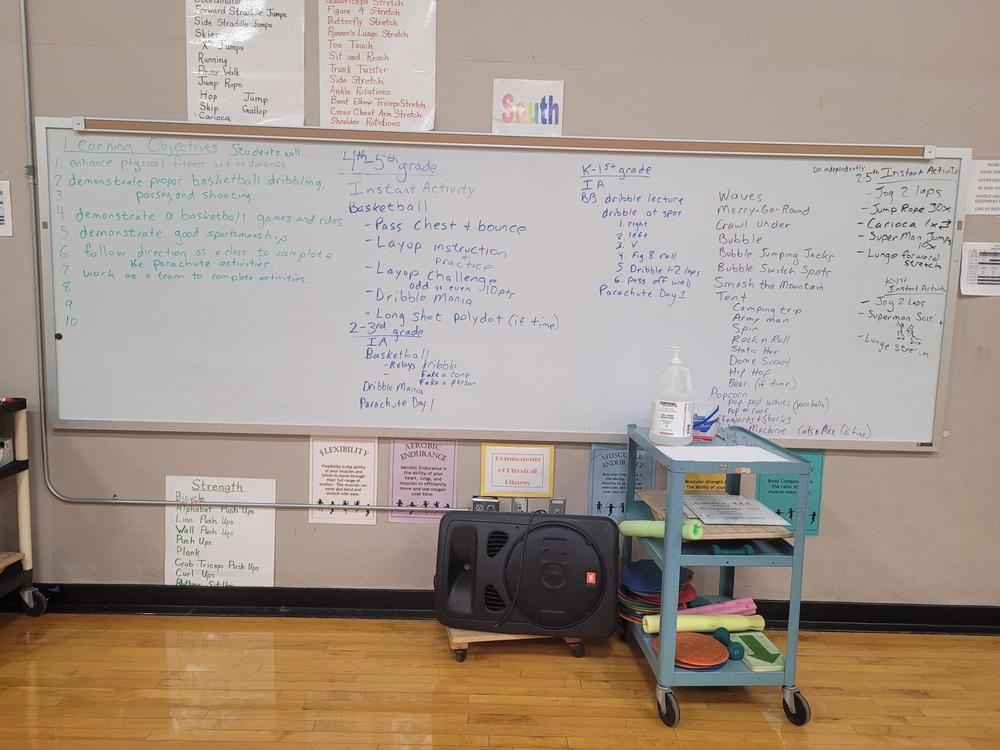 Coordinator
Forward Straddle Jumps
Side Straddle Jumps
Skier
"X" Jumps
Running
Power Walk
Jump Rope
Hop Jump
Skip Gallop
Carioca
Quadriceps Stretch
Figure 4 Stretch
Butterfly Stretch
Runner's Lunge Stretch
Toe Touch
Sit and Reach
Trunk Twister
Side Stretch
Ankle Rotations
Bent Elbow Triceps Stretch
Cross Chest Arm Stretch
Shoulder Rotations
South
Learning Objectives Students will...
1. enhance physical fitness and endurance.
2 demonstrate propor basketball dribbling,
3 passing and shooting.
4 demonstrate a basketball games and rules
5 demonstrate good sportsmanship
6 follow direction as a class to complete
the parachute activities
7 work as a team to complete activities.
8
9
10
4th-5th grade
Instant Activity
Basketball
- Pass Chest & bounce
- Layup instruction
+
practice
- Layup Challenge
odd vs even 10pts
- Dribble Mania
- Long shot polydot (if time)
2-3rd grade
IA
Basketball
- Relays dribble
- Fake a cone
Fake a person
Dribble Mania
Parachute Day 1
K-1st grade
IA
BB dribble lecture
dribble at spot
1. right
2. left
3. V
4. Fig 8 roll
5. Dribble 1-2 laps
6. pass off wall
Parachute Day 1
Waves
Merry-Go-Round
Crawl Under
Bubble
Bubble Jumping Jacks
Bubble Switch Spots
Smash the Mountain
Tent
Camping trip
Army man
Spin
Rock n Roll
Static Hair
Dome Scoot
Hip Hop
Bear (if time)
Popcorn
Pop pop waves (yarn balls)
Pop roof
& Sharks
Machine Cats & Mice (if time)
Do independently
2-5th Instant Activity
- Jog 2 laps
- Jump Rope 30x
- Carioca 1x
- Super Man Jumps
10x
- Lunge forward
stretch
K-1st
Instant Activity
- Jog 2 Laps
- Superman
- Lunge Stretch
FLEXIBILITY
Flexibility is the ability
of your muscles and
joints to move
through their full
range of motion. The muscles can
twist and bend and
stretch with ease.
AEROBIC
ENDURANCE
Aerobic Endurance is
the ability of your
heart, lungs, and
muscles to efficiently
move and use oxygen
over time.
Components
of Physical
Fitness
MUSCULAR
ENDURANCE
Muscular strength
the ability of your
Body Composition
the ratio of
muscle mass
Strength
Bicycle
Alphabet Push Ups
Line Push Ups
Wall Push Ups
Push Ups
Plank
Crab Triceps Push Ups
Curl Ups
JBL